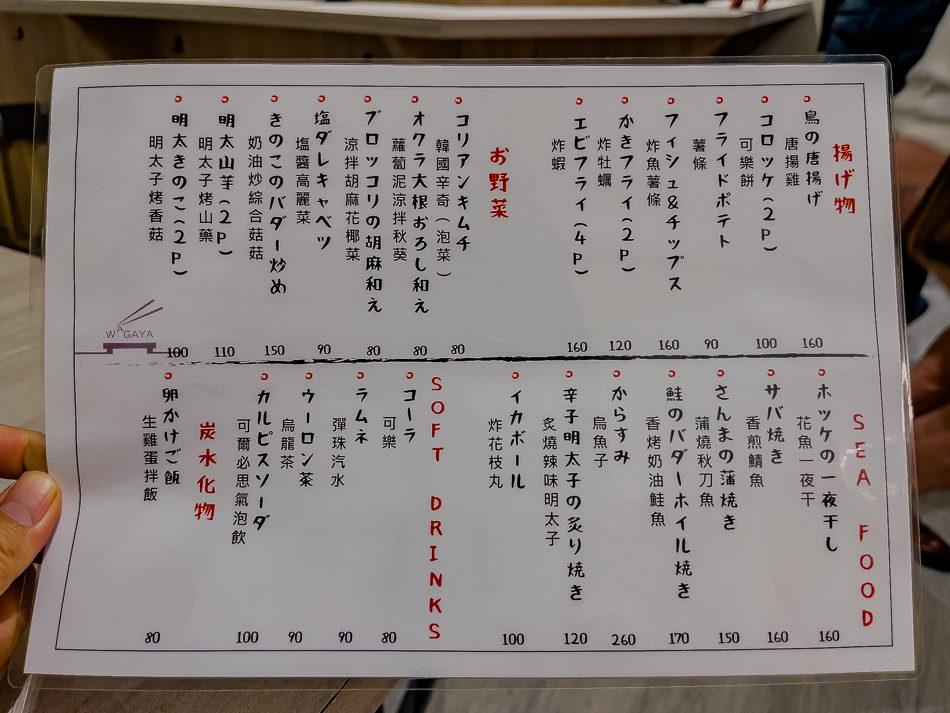 揚げ物
鳥の唐揚げ
唐揚雞
160
コロッケ(2P)
可樂餅
100
フライドポテト
薯條
90
フィシュ&チップス
炸魚薯條
160
かきフライ(2P)
炸牡蠣
120
エビフライ(4P)
炸蝦
160
お野菜
コリアンキムチ
韓國辛奇(泡菜)
80
オクラ大根おろし和え
蘿蔔泥涼拌秋葵
80
ブロッコリの胡麻和え
涼拌胡麻花椰菜
80
塩ダレキャベツ
塩醬高麗菜
90
きのこのバダー炒め
奶油炒綜合菇菇
150
明太山芋(2P)
明太子烤山藥
110
明太きのこ(2P)
明太子烤香菇
100
WAGAYA
SEA FOOD
ホッケの一夜干し
花魚一夜干
160
サバ焼き
香煎鯖魚
160
さんまの蒲焼き
蒲燒秋刀魚
150
鮭のバダーホイル焼き
香烤奶油鮭魚
170
からすみ
烏魚子
260
辛子明太子の炙り焼き
炙燒辣味明太子
120
イカボール
炸花枝丸
100
SOFT DRINKS
コーラ
可樂
80
ラムネ
彈珠汽水
90
ウーロン茶
烏龍茶
90
カルピスソーダ
可爾必思氣泡飲
100
炭水化物
卵かけご飯
生雞蛋拌飯
80